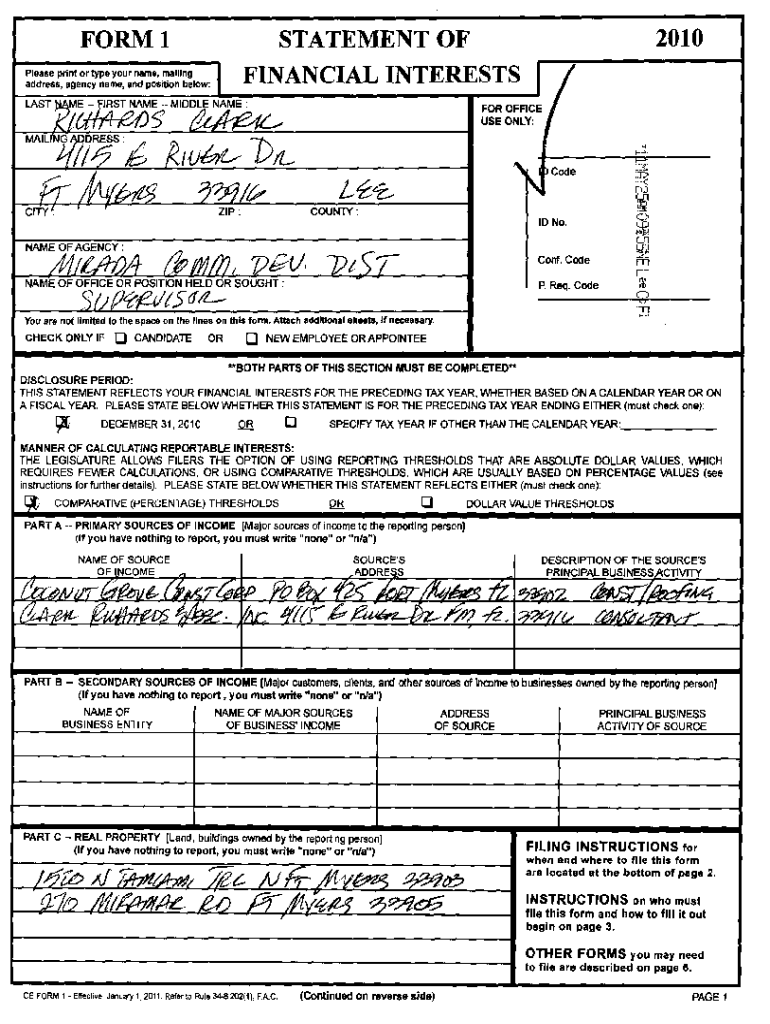 FORM 1 STATEMENT OF 2010
FINANCIAL INTERESTS
Please print or type your name, mailing
address, agency name, and position below:
LAST NAME -- FIRST NAME -- MIDDLE NAME :
RICHARDS CLARK
MAILING ADDRESS :
4115 E RIVER DR
FT MYERS 33916 LEE
CITY : ZIP : COUNTY :
NAME OF AGENCY :
MIRADA COMM. DEV. DIST
NAME OF OFFICE OR POSITION HELD OR SOUGHT :
SUPERVISOR
You are not limited to the space on the lines on this form. Attach additional sheets, if necessary.
CHECK ONLY IF CANDIDATE OR NEW EMPLOYEE OR APPOINTEE
FOR OFFICE
USE ONLY:
ID Code
ID No.
Conf. Code
P. Req. Code
**BOTH PARTS OF THIS SECTION MUST BE COMPLETED**
DISCLOSURE PERIOD:
THIS STATEMENT REFLECTS YOUR FINANCIAL INTERESTS FOR THE PRECEDING TAX YEAR, WHETHER BASED ON A CALENDAR YEAR OR ON
A FISCAL YEAR. PLEASE STATE BELOW WHETHER THIS STATEMENT IS FOR THE PRECEDING TAX YEAR ENDING EITHER (must check one):
DECEMBER 31, 2010 OR SPECIFY TAX YEAR IF OTHER THAN THE CALENDAR YEAR:
MANNER OF CALCULATING REPORTABLE INTERESTS:
THE LEGISLATURE ALLOWS FILERS THE OPTION OF USING REPORTING THRESHOLDS THAT ARE ABSOLUTE DOLLAR VALUES, WHICH
REQUIRES FEWER CALCULATIONS, OR USING COMPARATIVE THRESHOLDS, WHICH ARE USUALLY BASED ON PERCENTAGE VALUES (see
instructions for further details). PLEASE STATE BELOW WHETHER THIS STATEMENT REFLECTS EITHER (must check one):
COMPARATIVE (PERCENTAGE) THRESHOLDS OR DOLLAR VALUE THRESHOLDS
PART A -- PRIMARY SOURCES OF INCOME [Major sources of income to the reporting person]
(If you have nothing to report, you must write "none" or "n/a")
NAME OF SOURCE SOURCE'S DESCRIPTION OF THE SOURCE'S
OF INCOME ADDRESS PRINCIPAL BUSINESS ACTIVITY
COCONUT GROVE CONST CORP PO BOX 425 FORT MYERS FL 33902 CONST/ROOFING
CLARK RICHARDS & ASSC. INC 4115 E RIVER DR FM, FL. 33916 CONSULTANT
PART B -- SECONDARY SOURCES OF INCOME [Major customers, clients, and other sources of income to businesses owned by the reporting person]
(If you have nothing to report , you must write "none" or "n/a")
NAME OF NAME OF MAJOR SOURCES ADDRESS PRINCIPAL BUSINESS
BUSINESS ENTITY OF BUSINESS' INCOME OF SOURCE ACTIVITY OF SOURCE
PART C -- REAL PROPERTY [Land, buildings owned by the reporting person]
(If you have nothing to report, you must write "none" or "n/a")
N TAMIAMI TRL N FT MYERS 33903
270 MIRAMAR RD FT MYERS 33905
FILING INSTRUCTIONS for
when and where to file this form
are located at the bottom of page 2.
INSTRUCTIONS on who must
file this form and how to fill it out
begin on page 3.
OTHER FORMS you may need
to file are described on page 6.
CE FORM 1 - Effective January 1, 2011. Refer to Rule 34-8.202(1), F.A.C. (Continued on reverse side) PAGE 1